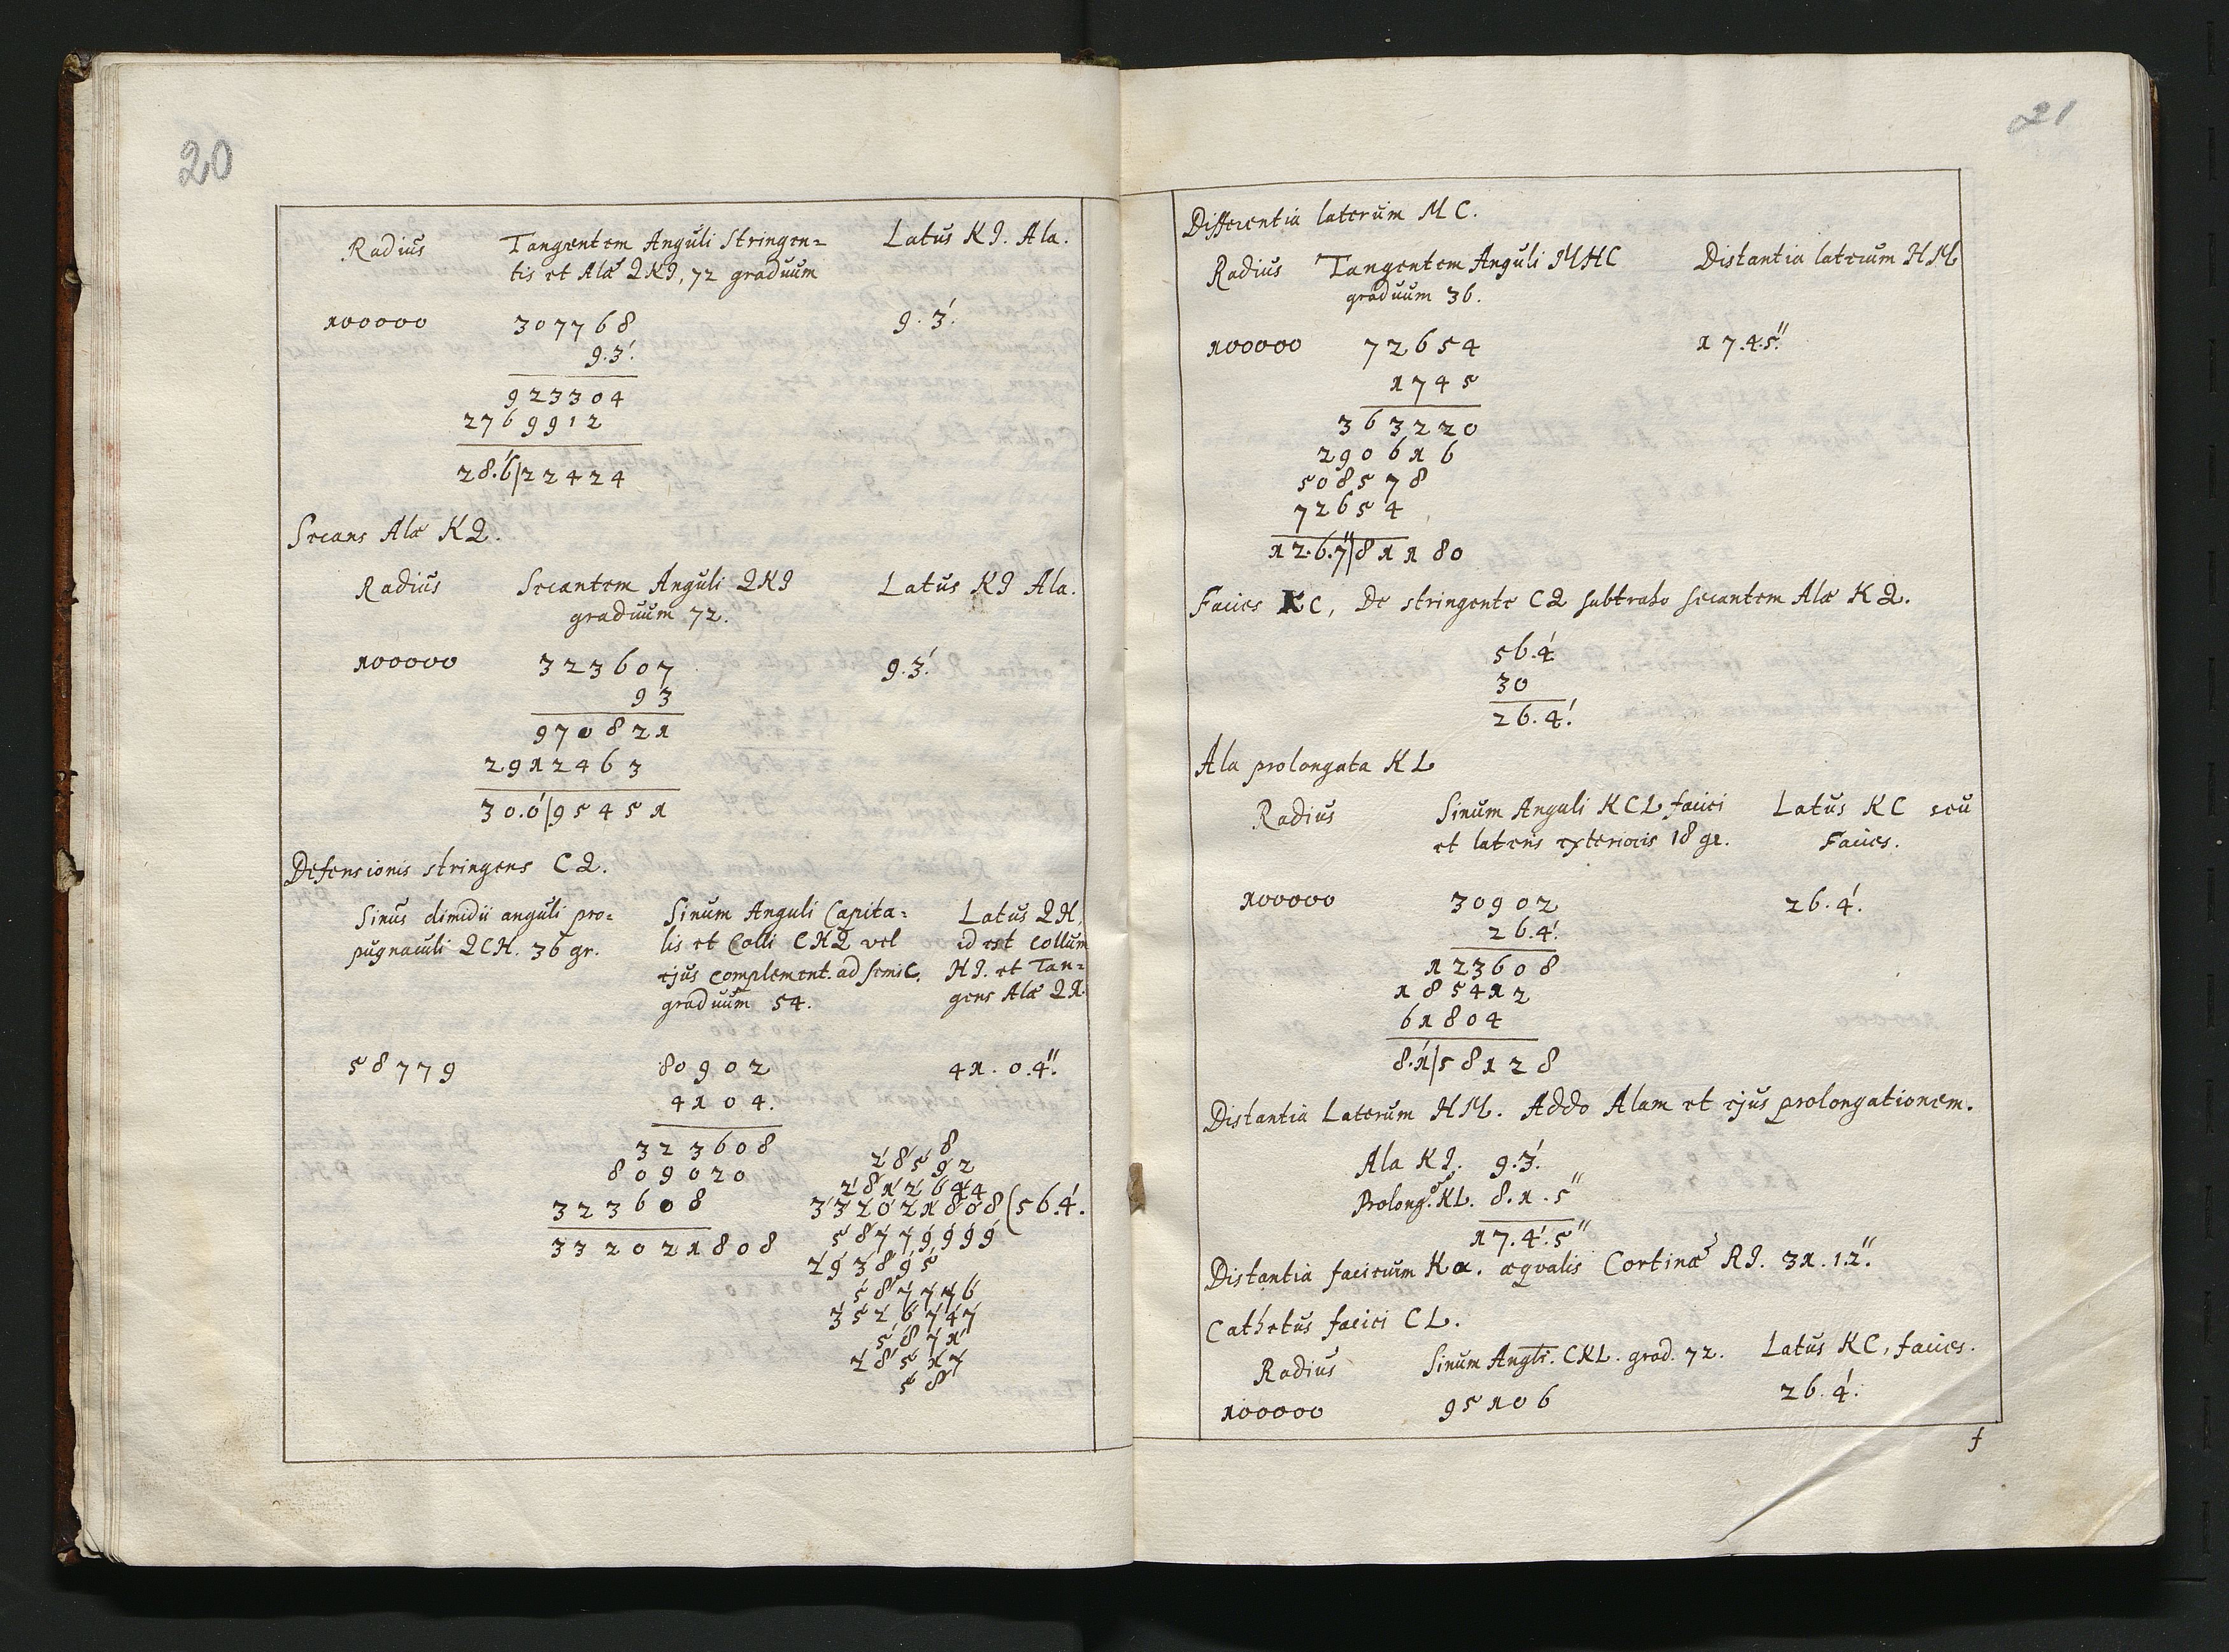 20
Radius Tangentem Anguli stringen= Latus KI. Ala.
tis et Alæ QKI, 72 graduum
100000 307768 9.3'.
9.3'.
923304
2769912
28.6'|22424
Secans Alæ KQ.
Radius Secantem Anguli QKI Latus KI Ala.
graduum 72.
100000 323607 9.3'.
93
970821
2912463
30.0'|95451
Defensionis stringens CQ.
Sinus dimidii anguli pro= Sinum Anguli Capita= Latus QH,
pugnaculi QCH. 36 gr. lis et Colli CHQ vel id est Collum
ejus complement. ad semiC. HI. et Tan=
graduum 54. gens Alæ QI.
58779 80902 41.0.4''.
4104.
323608 8
809020 28592
323608 2812644
332021808 332021808(56.4'.
58779999
293895
587776
3526747
5871
28517
58
21
Differentia laterum MC.
Radius Tangentem Anguli MHC Distantia laterum HM
graduum 36.
100000 72654 17.4.5''.
1745
363220
290616
508578
72654
12.6.7''|81180
Facies KC, De stringente CQ subtraho secantem Alæ KQ.
56.4'
30
26.4'.
Ala prolongata KL
Radius Sinum Anguli KCL faciei Latus KC seu
et lateris exterioris 18 gr. Facies.
100000 30902 26.4'.
26.4'.
123608
185412
61804
8.1'|58128
Distantia Laterum HM. Addo Alam et ejus prolongationem.
Ala KI. 9.3'.
Prolong. KL. 8.1.5''
17.4'.5''
Distantia facierum Kα. æqvalis Cortinæ RI. 31.1.2''.
Cathetus faciei CL.
Radius Sinum Angli. CKL. grad. 72. Latus KC, facies.
100000 95106 26.4'.
f